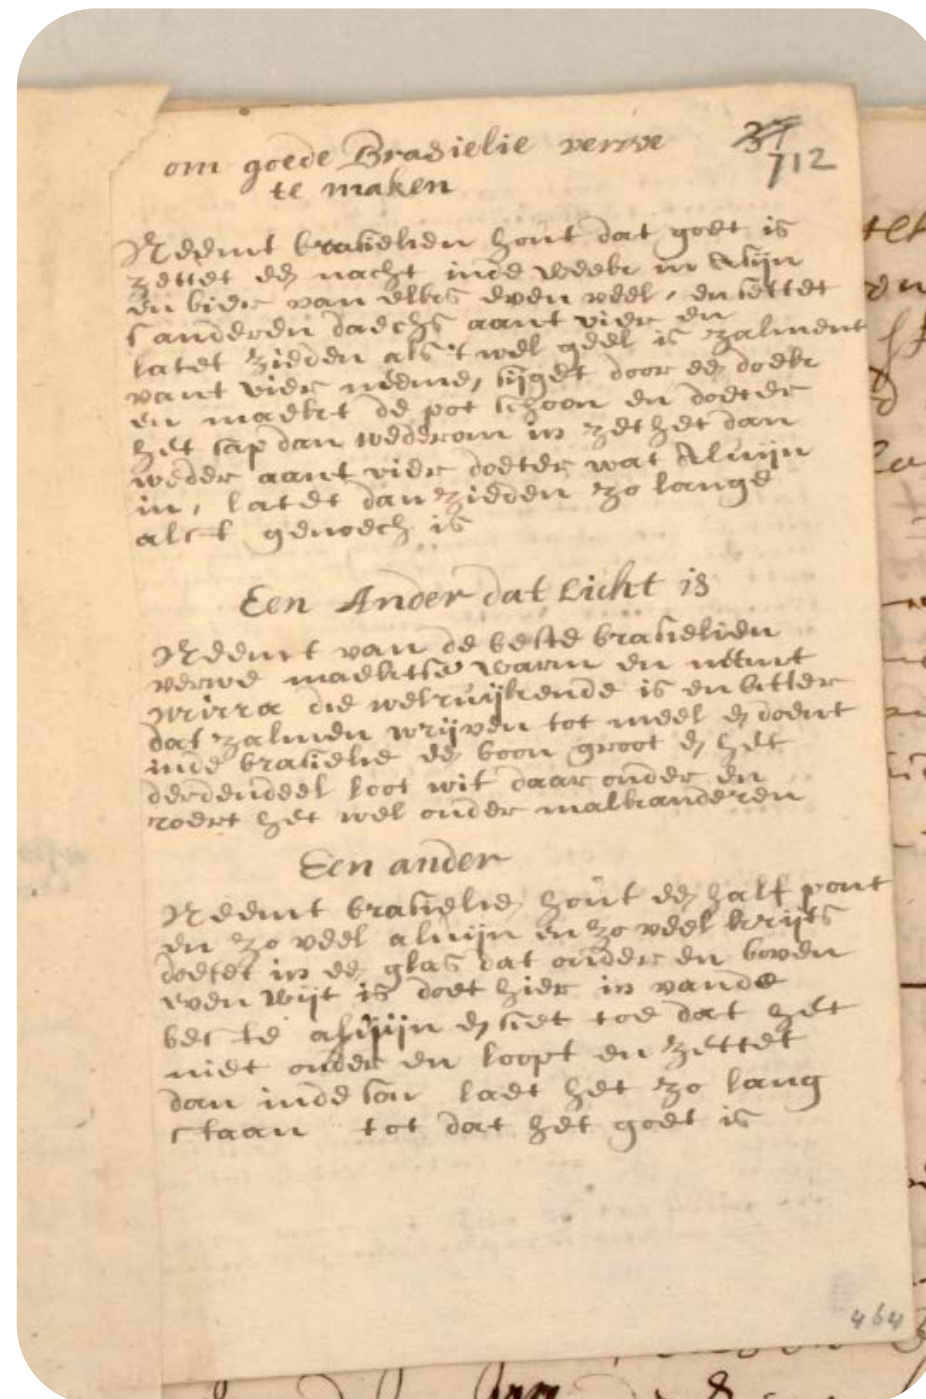 om goede Brasielie verwe
37
712
te maken
Neemt brasielien hout dat goet is
zettet een nacht inde weeke in Asijn
en bier van elkes even veel, en settet
sanderen daechs aant vier en
latet zieden als 't wel geel is zalment
vant vier neeme, sijget door een doek
en maekt de pot schoon en doeter
het sap dan wederom in zet het dan
weder aant vier doeter wat Aluijn
in, latet dan zieden zo lange
alst genoech is
Een Ander dat Licht is
Neemt van de beste brasielien
verwe maektse warm en neemt
mirra die welruijkende is en bitter
dat zalmen wrijven tot meel en doent
inde brasielie een boon groot en het
derdendeel loot wit daar onder en
roert het wel onder malkanderen
Een ander
Neemt brasielien hout een half pont
en zo veel aluijn en zo veel krijts
doetet in een glas dat onder en boven
even wijt is doet hier in vande
beste en siet toe dat het
niet onder en loopt en zettet
dan inde son laet het zo lang
staan tot dat het goet is
464